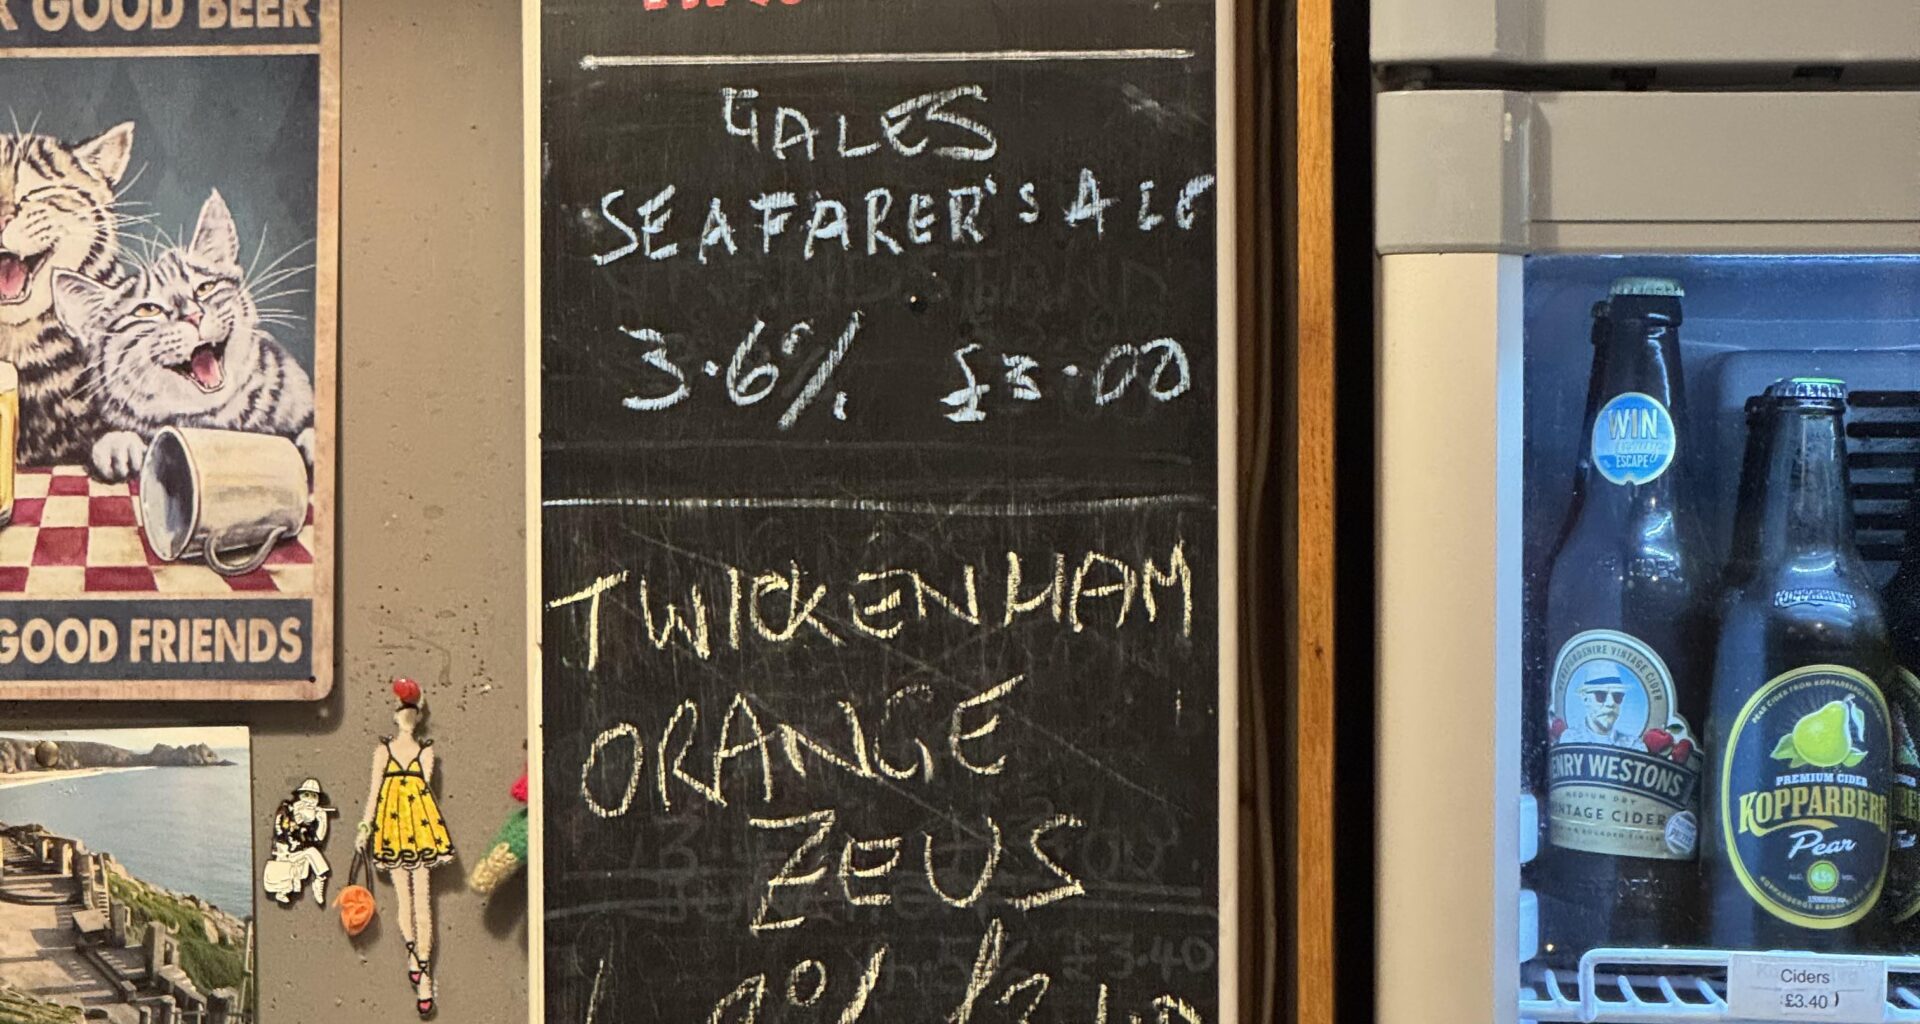 GOOD BEER
GOOD FRIENDS
GALES
SEAFARER'S ALE
3.6% £3.00
TWICKENHAM
ORANGE
ZEUS
WIN
ESCAPE
VINTAGE CIDER
HENRY WESTONS
MEDIUM DRY
VINTAGE CIDER
PREMIUM CIDER
KOPPARBERG
Pear
Ciders
£3.40